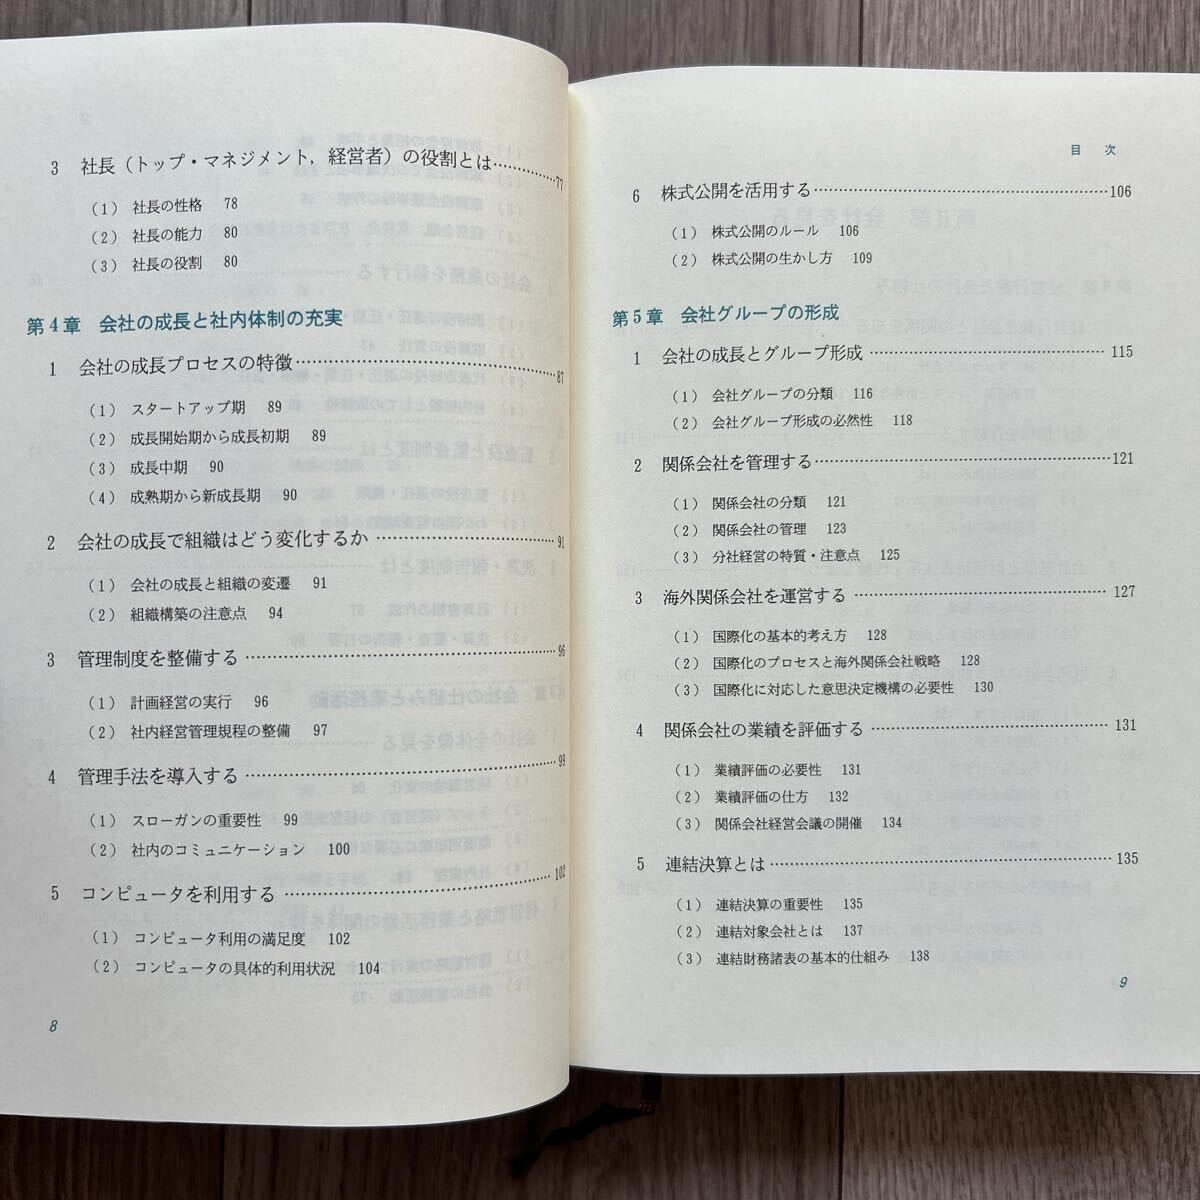 3 社長（トップ・マネジメント，経営者）の役割とは……………77
（1） 社長の性格 78
（2） 社長の能力 80
（3） 社長の役割 80
第4章 会社の成長と社内体制の充実
1 会社の成長プロセスの特徴……………87
（1） スタートアップ期 89
（2） 成長開始期から成長初期 89
（3） 成長中期 90
（4） 成熟期から新成長期 90
2 会社の成長で組織はどう変化するか……………91
（1） 会社の成長と組織の変遷 91
（2） 組織構築の注意点 94
3 管理制度を整備する……………96
（1） 計画経営の実行 96
（2） 社内経営管理規程の整備 97
4 管理手法を導入する……………99
（1） スローガンの重要性 99
（2） 社内のコミュニケーション 100
5 コンピュータを利用する……………102
（1） コンピュータ利用の満足度 102
（2） コンピュータの具体的利用状況 104
8
目 次
6 株式公開を活用する……………106
（1） 株式公開のルール 106
（2） 株式公開の生かし方 109
第5章 会社グループの形成
1 会社の成長とグループ形成……………115
（1） 会社グループの分類 116
（2） 会社グループ形成の必然性 118
2 関係会社を管理する……………121
（1） 関係会社の分類 121
（2） 関係会社の管理 123
（3） 分社経営の特質・注意点 125
3 海外関係会社を運営する……………127
（1） 国際化の基本的考え方 128
（2） 国際化のプロセスと海外関係会社戦略 128
（3） 国際化に対応した意思決定機構の必要性 130
4 関係会社の業績を評価する……………131
（1） 業績評価の必要性 131
（2） 業績評価の仕方 132
（3） 関係会社経営会議の開催 134
5 連結決算とは……………135
（1） 連結決算の重要性 135
（2） 連結対象会社とは 137
（3） 連結財務諸表の基本的仕組み 138
9